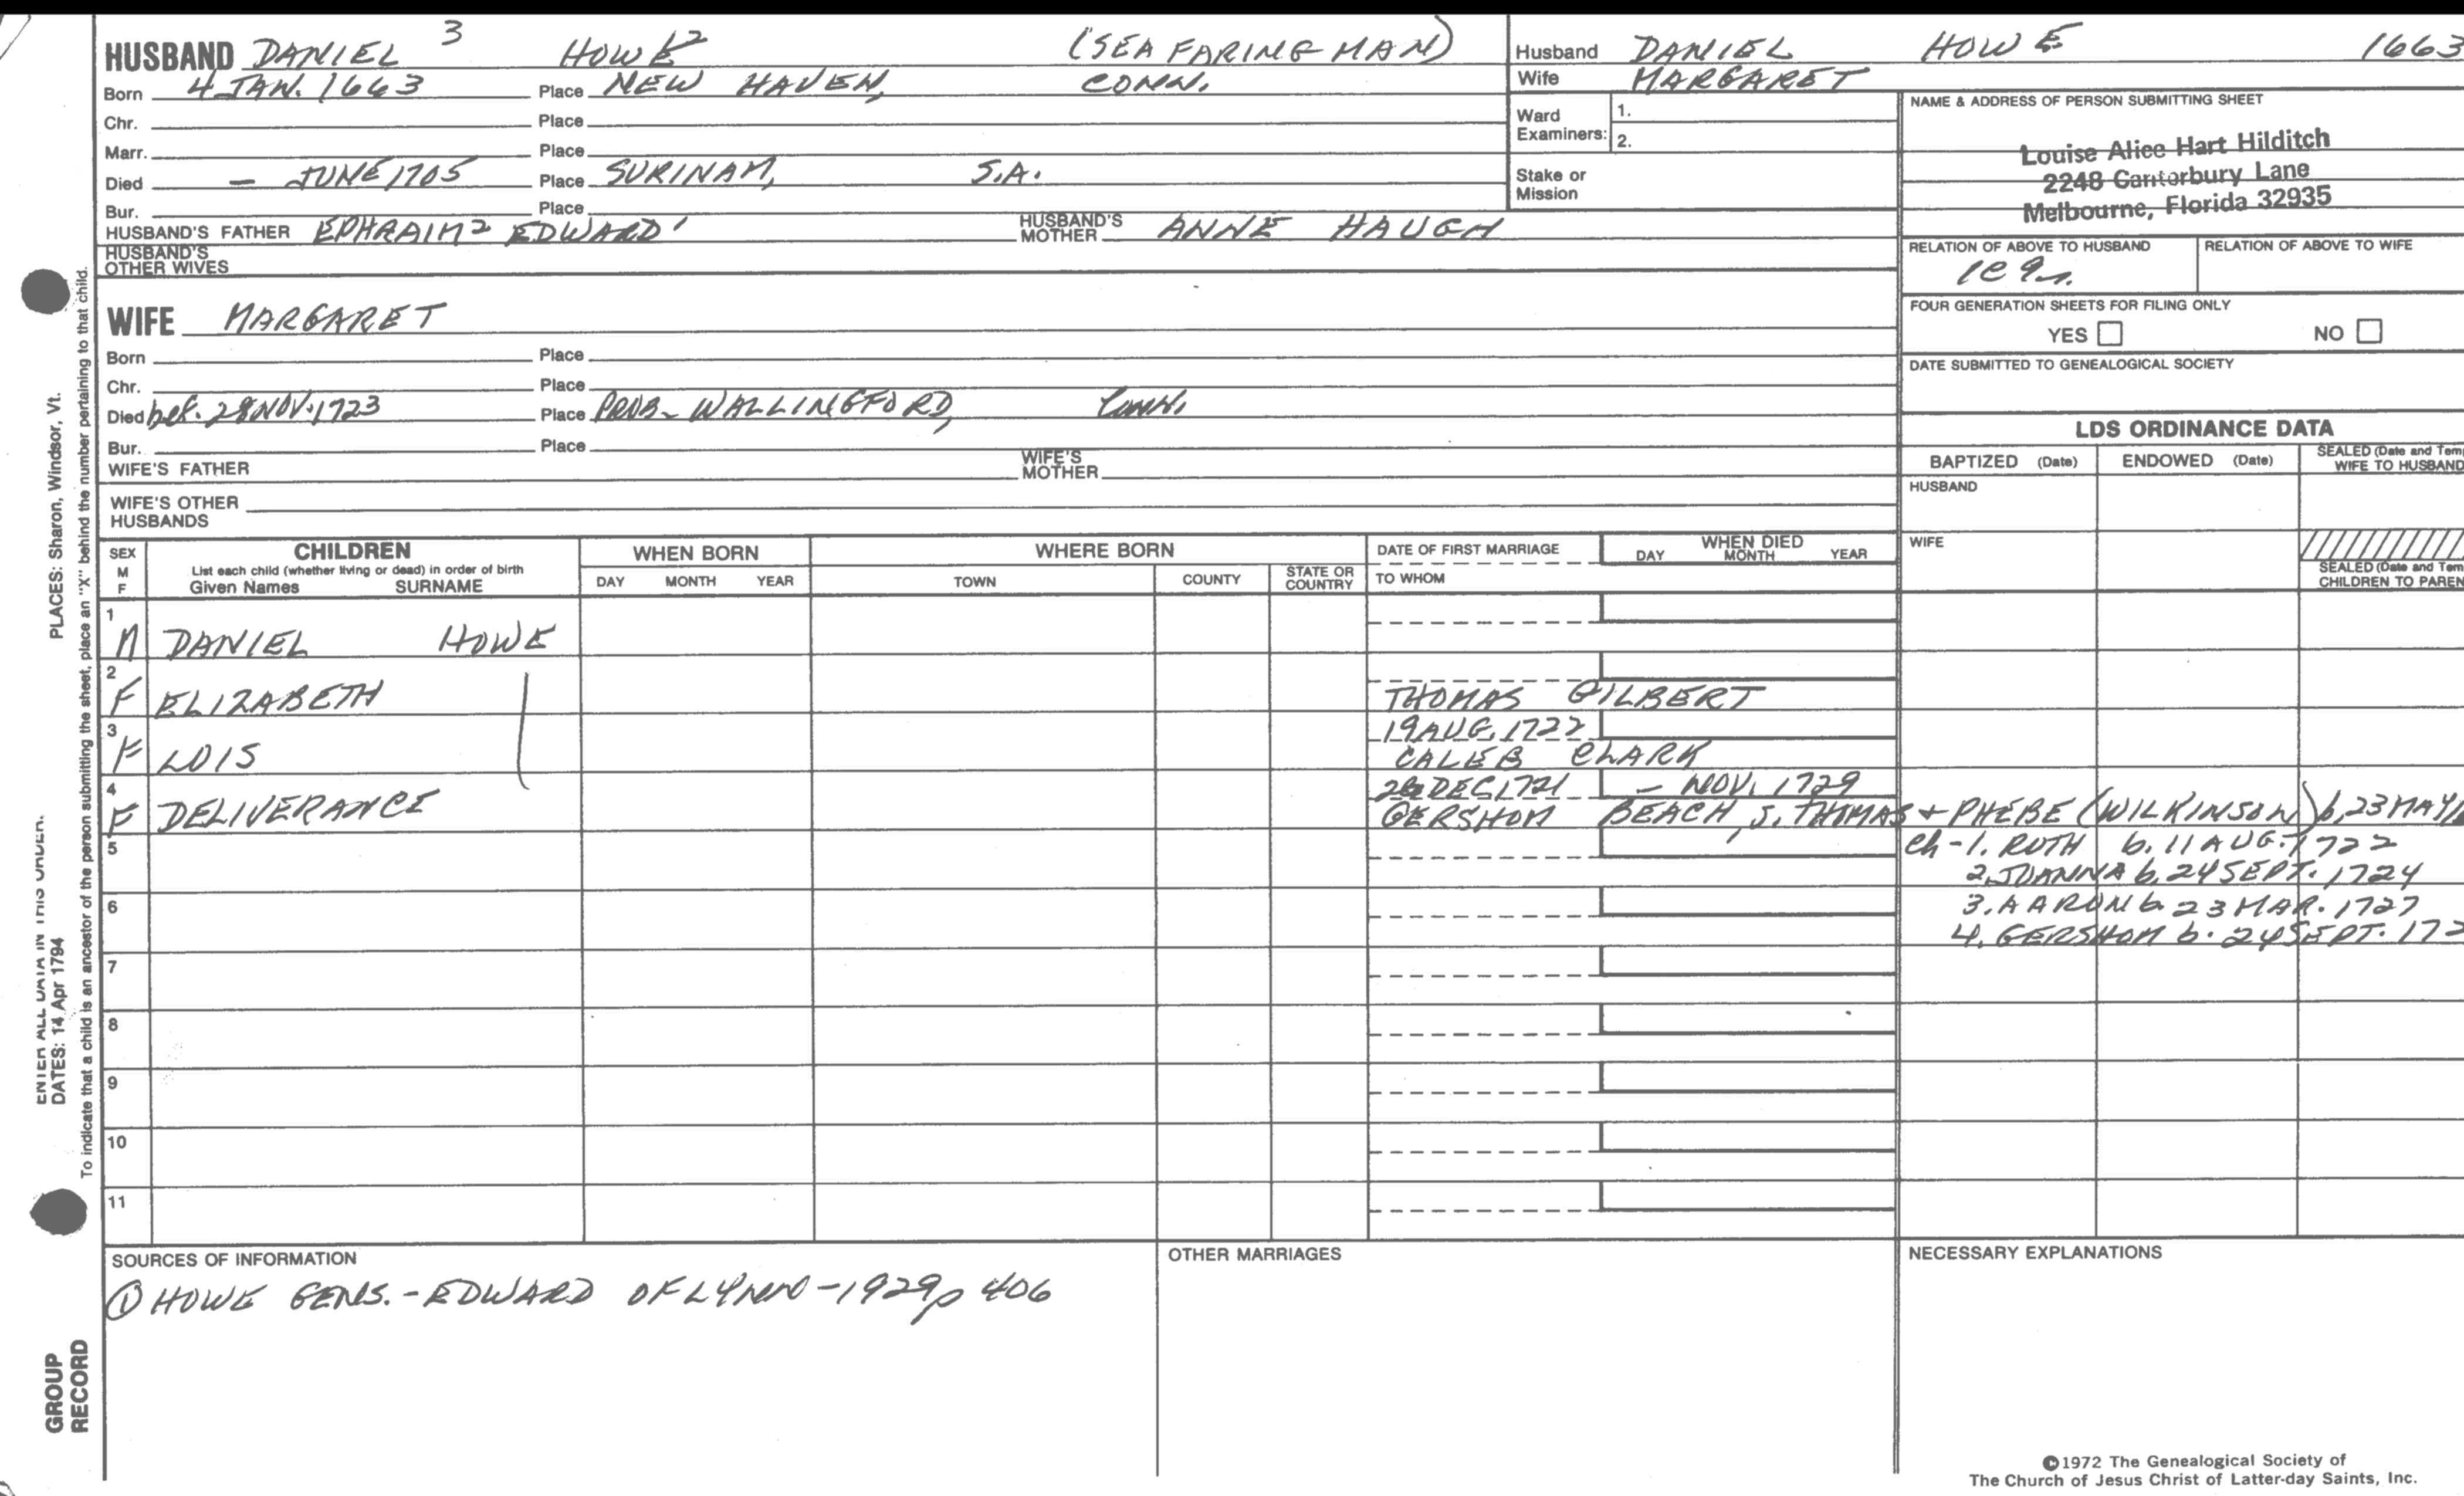 HUSBAND DANIEL 3 HOWE 2 (SEA FARING MAN)
Born 4 JAN. 1663 Place NEW HAVEN, CONN.
Chr. Place
Marr. Place
Died - JUNE 1705 Place SURINAM, S.A.
Bur. Place
HUSBAND'S FATHER EPHRAIM 2 EDWARD 1 HUSBAND'S MOTHER ANNE HAUGH
HUSBAND'S OTHER WIVES
WIFE MARGARET
Born Place
Chr. Place
Died bef. 28 NOV. 1723 Place PROB- WALLINGFORD, Conn.
Bur. Place
WIFE'S FATHER WIFE'S MOTHER
WIFE'S OTHER HUSBANDS
Husband DANIEL HOWE 1663
Wife MARGARET
Ward Examiners: 1.
2.
Stake or Mission
NAME & ADDRESS OF PERSON SUBMITTING SHEET
Louise Alice Hart Hilditch
2248 Canterbury Lane
Melbourne, Florida 32935
RELATION OF ABOVE TO HUSBAND RELATION OF ABOVE TO WIFE
FOUR GENERATION SHEETS FOR FILING ONLY
YES NO
DATE SUBMITTED TO GENEALOGICAL SOCIETY
LDS ORDINANCE DATA
BAPTIZED (Date) ENDOWED (Date) SEALED (Date and Tem
WIFE TO HUSBAND
HUSBAND
WIFE
SEALED (Date and Tem
CHILDREN TO PAREN
SEX M F CHILDREN WHEN BORN WHERE BORN DATE OF FIRST MARRIAGE WHEN DIED
List each child (whether living or dead) in order of birth
Given Names SURNAME DAY MONTH YEAR TOWN COUNTY STATE OR COUNTRY TO WHOM DAY MONTH YEAR
1
M DANIEL HOWE
2
F ELIZABETH THOMAS GILBERT
3 19 AUG. 1722
F LOIS CALEB CLARK
4 DEC 1721 - NOV. 1729
F DELIVERANCE GERSHOM BEACH, S. THOMAS + PHEBE (WILKINSON) b, 23 MAY
5 Ch - 1. RUTH b. 11 AUG. 1722
2. JOANNA b. 24 SEPT. 1724
6 3. AARON b. 23 MAR. 1727
4. GERSHOM b. 24 SEPT. 172
7
8
9
10
11
SOURCES OF INFORMATION
① HOWE GENS. - EDWARD OF LYNN - 1929 p 406
OTHER MARRIAGES
NECESSARY EXPLANATIONS
©1972 The Genealogical Society of
The Church of Jesus Christ of Latter-day Saints, Inc.
ENTER ALL DATA IN THIS ORDER.
PLACES: Sharon, Windsor, Vt.
DATES: 14 Apr 1794
To indicate that a child is an ancestor of the person submitting the sheet, place an "X" behind the number pertaining to that child.
GROUP
RECORD